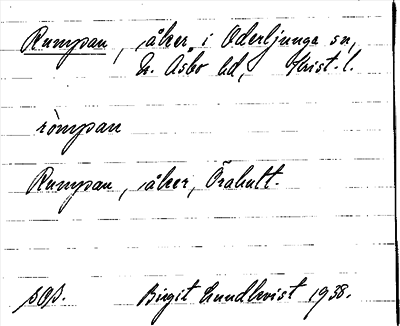 Rumpan, åker i Oderljunga sn,
N. Åsbo hd, Krist. l.
ròmpan
Rumpan, åker, Örahult.
sOp.
Birgit Lundkvist 1938.